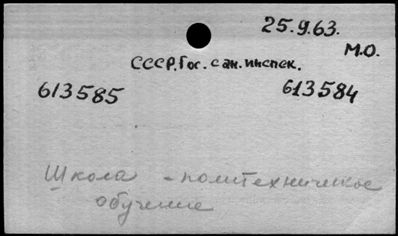 25.9.63.
М.О.
СССР. Гос. сан. инспек.
613585 613584
Школа - политехническое
обучение